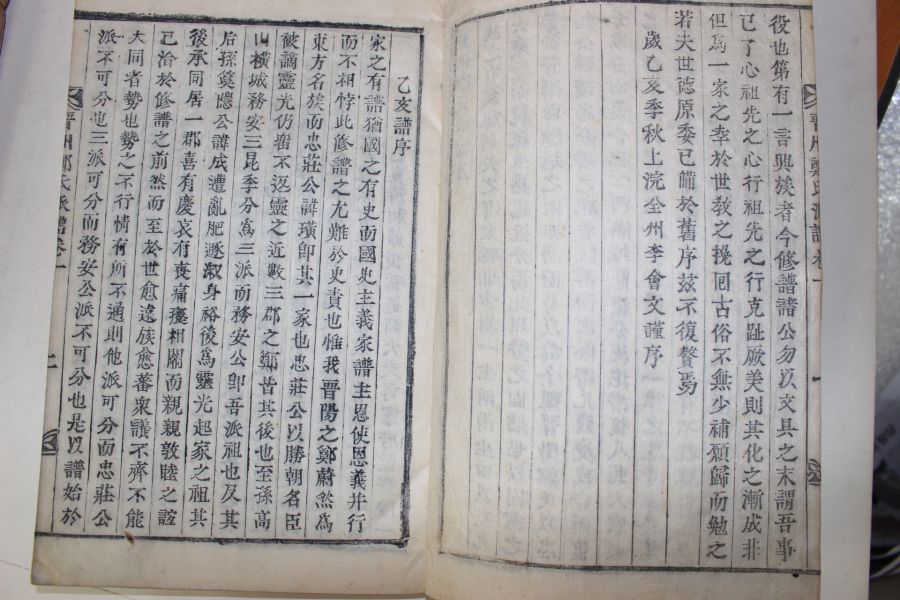 役也第有一言興族者今修譜諸公勿以文具之末謂吾事
已了心祖先之心行祖先之行克趾厥美則其化之漸成非
但為一家之幸於世敎之挽回古俗不無少補願歸而勉之
若夫世德原委已備於舊序玆不復贅焉
歲乙亥季秋上浣全州李會文謹序
晋州鄭氏派譜卷一
一
乙亥譜序
家之有譜猶國之有史而國史主義家譜主恩使恩義并行
而不相悖此修譜之尤難於史責也惟我晋陽之鄭蔚然為
東方名族而忠莊公諱璜卽其一家也忠莊公以勝朝名臣
被謫靈光仍畱不返靈之近數三郡之鄭皆其後也至孫高
山橫城務安三昆季分為三派而務安公卽吾派祖也及其
后孫奠隱公諱成遭亂肥遯淑身裕後為靈光起家之祖其
後承同居一郡喜有慶哀有喪痛癢相關而親親敦睦之誼
已洽於修譜之前然而至於世愈遠族愈蕃衆議不齊不能
大同者勢也勢之不行情有所不通則他派可分而忠莊公
派不可分也三派可分而務安公派不可分也是以譜始於
晋州鄭氏派譜卷一
二